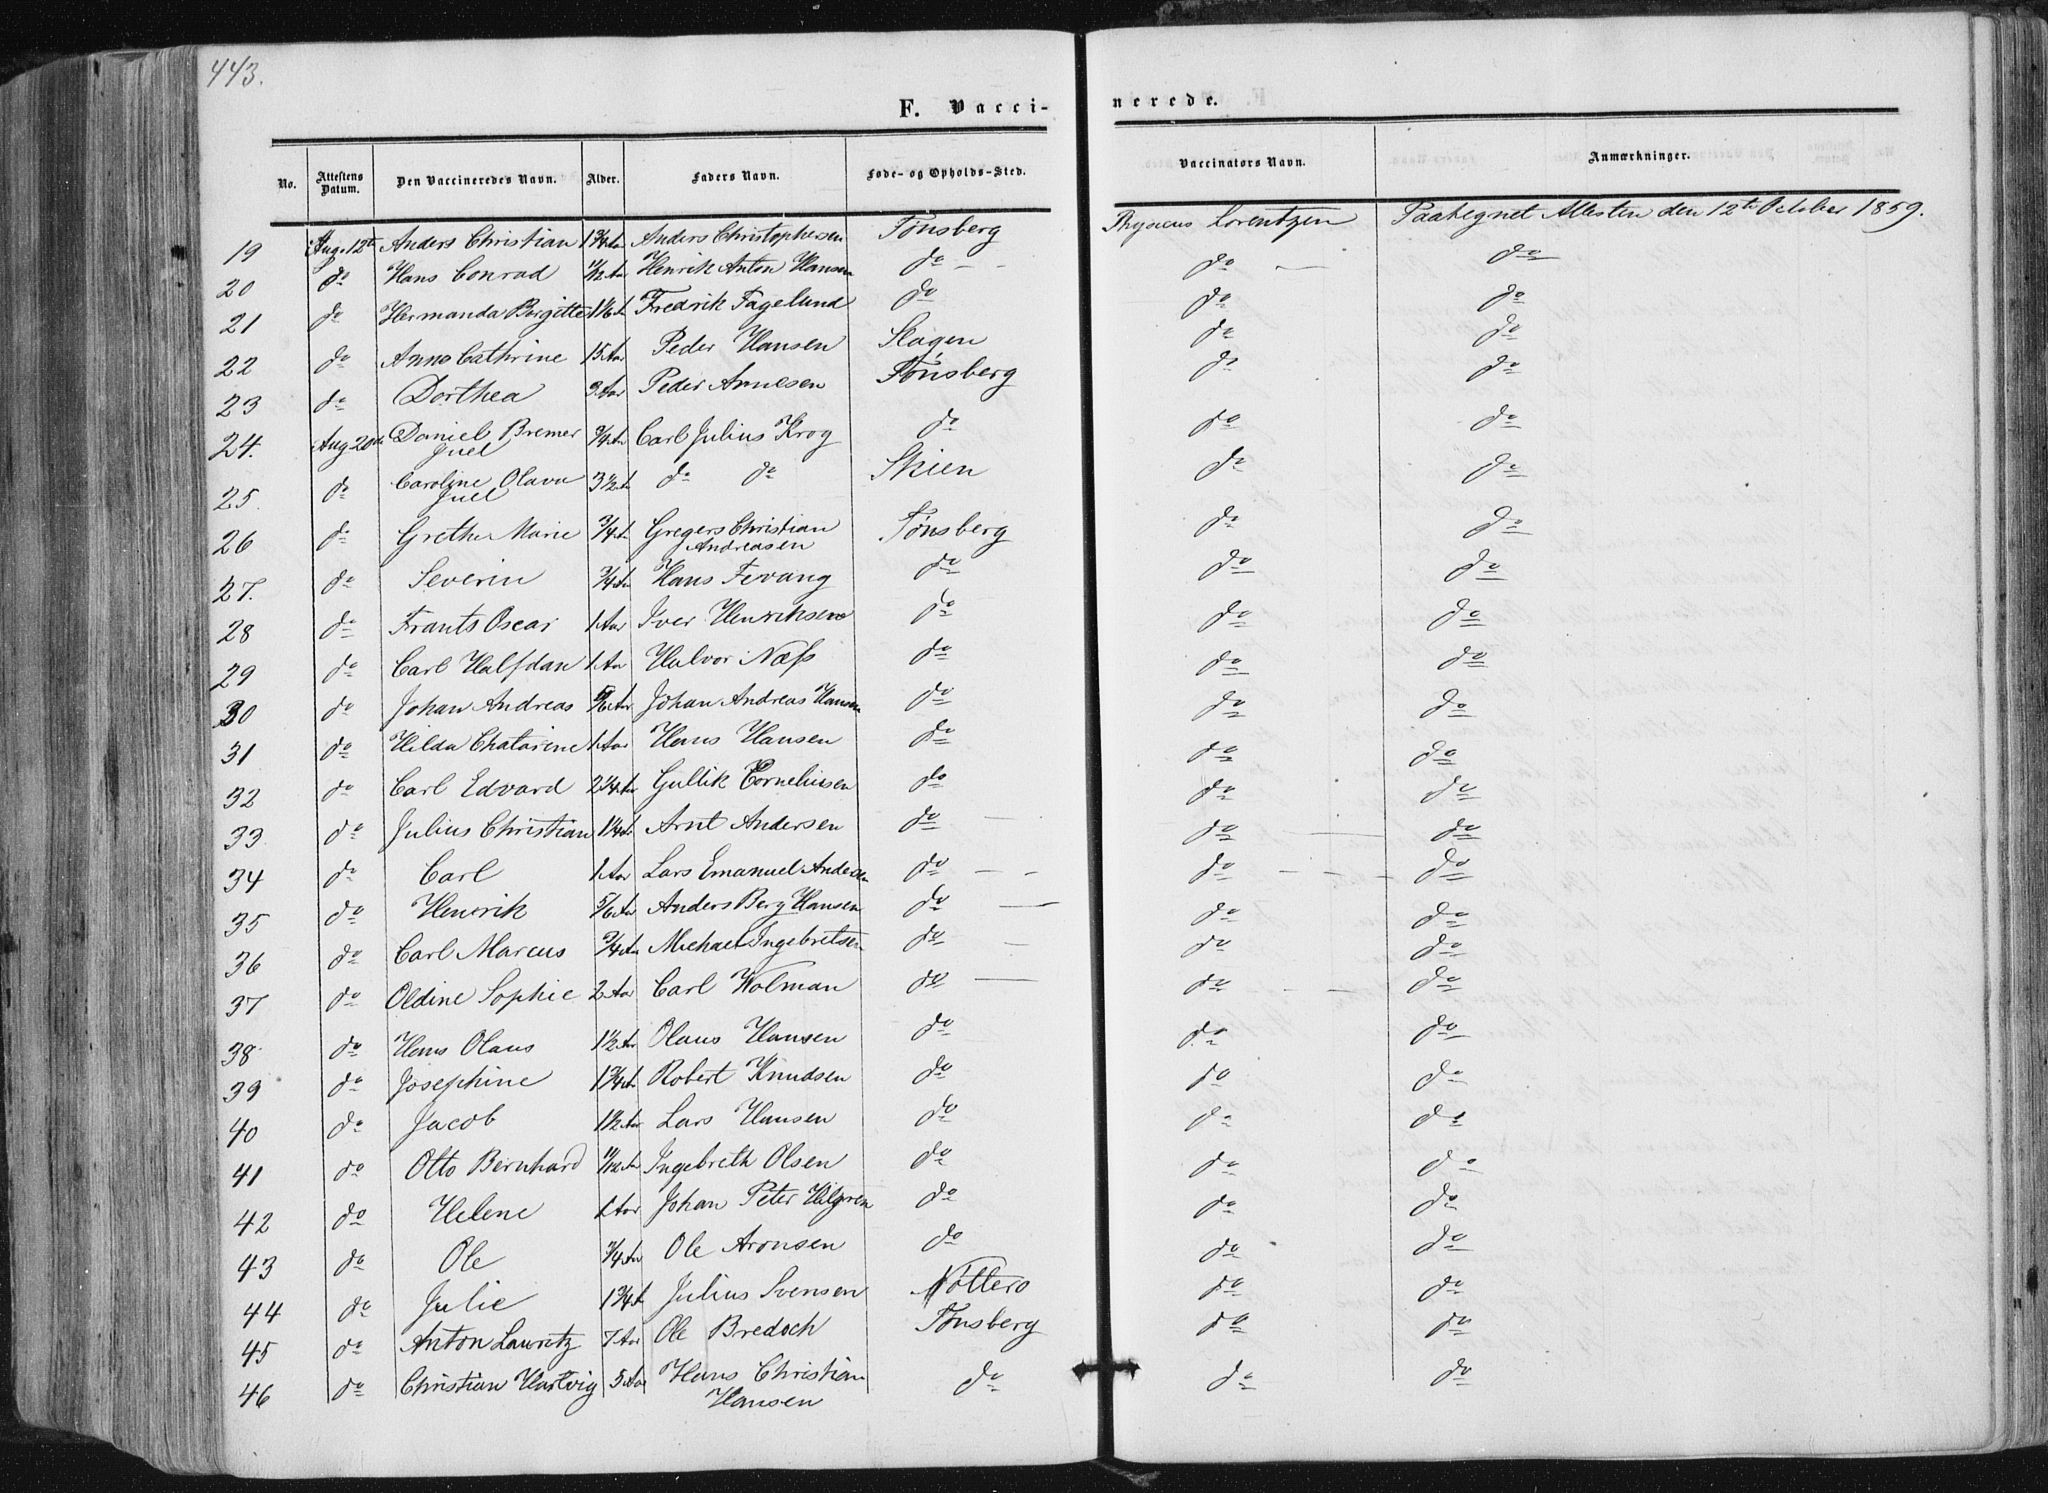 443.
F. Vacci-
nerede.
No. Attestens Datum. Den Vaccineredes Navn. Alder. Faders Navn. Føde- og Opholds-Sted. Vaccinators Navn. Anmærkninger.
19 Aug. 12te Anders Christian 1 3/4 Aar Anders Christophersen Tønsberg Physicus Lorentzen Paategnet Attesten den 12te October 1859.
20 do Hans Conrad 11/12 Aar Henrik Anton Hansen do - - do - do
21 do Hermanda Birgitte 1 1/6 A Fredrik Fagelund do do do
22 do Anne Cathrine 15 Aar Peder Hansen Slagen do do
23 do Dorthea 3 Aar Peder Arnesen Tønsberg do do
24. Aug 20de Daniel Bremer Juel 3/4 Aar Carl Julius Krog do do do
25. do Caroline Olava Juel 3 1/2 A do do Skien do do
26 do Grethe Marie 3/4 A Gregers Christian Andreasen Tønsberg do do
27. do Severin 3/4 Aar Hans Fevang do do do
28 do Frants Oscar 1 Aar Iver Henriksen do do do
29 do Carl Halfdan 1 Aar Halvor Næss do do do
30 do Johan Andreas 5/6 Aar Johan Andreas Hansen do do do
31 do Hilda Chatarine 1 Aar Hans Hansen do do do
32 do Carl Edvard 2 1/4 Aar Gullik Corneliusen do do do
33 do Julius Christian 1 1/4 A Arnt Andersen do - do - do
34 do Carl 1 Aar Lars Emanuel Andersen do - - do - - - do
35 do Henrik 5/6 Aar Anders Berg Hansen do - do do
36 do Carl Marcus 3/4 Aar Michael Ingebretsen do - do do
37 do Oldine Sophie 2 Aar Carl Wolman do - do - - do
38 do Hans Olaus 1 1/2 Aar Olaus Hansen do do do
39 do Josephine 1 3/4 A Robert Knudsen do do do
40 do Jacob 1 1/2 Aar Lars Hansen do do do
41 do Otto Bernhard 11/12 A Ingebreth Olsen do do do
42 do Helene 1 Aar Johan Peter Hilgren do do do
43 do Ole 3/4 Aar Ole Aronsen do do do
44 do Julie 1 3/4 A Julius Svensen Nøtterø do do
45 do Anton Lauritz 7 Aar Ole Bredoch Tønsberg do do
46 do Christian Hartvig 5 Aar Hans Christian Hansen do do do